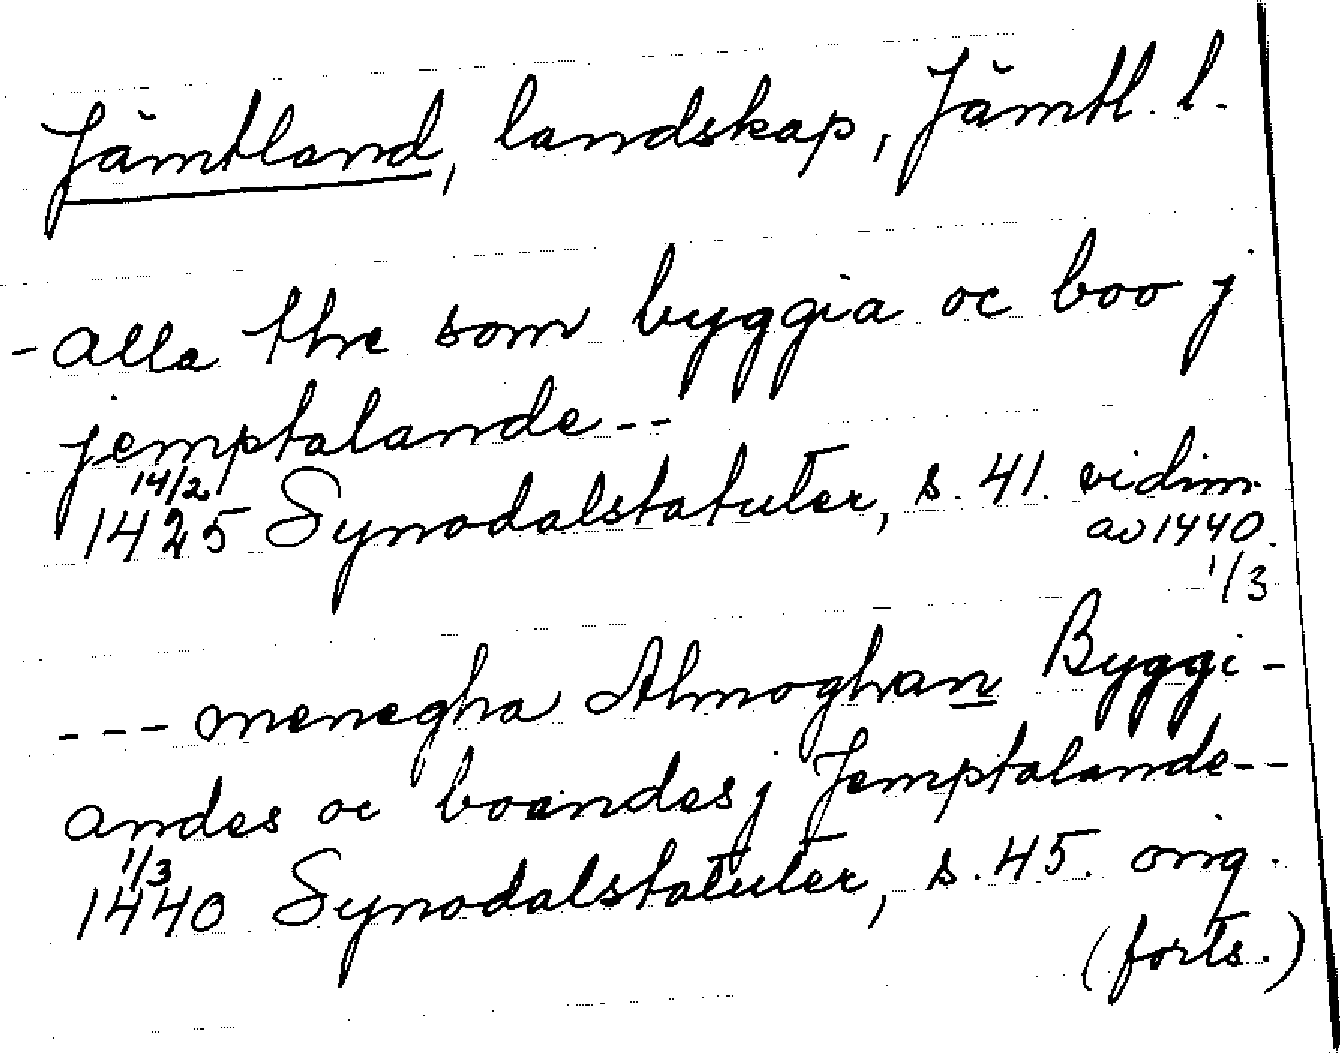 Jämtland, landskap, Jämtl. l.
- alla thre som byggia oc boo j
jemptalande --
14/2
1425 Synodalstatuter, s. 41. vidim.
av 1440.
1/3
--- menegha Almoghan Byggi-
andes oc boandes j Jemptalande--
1/3
1440 Synodalstatuter, s. 45. orig.
(forts.)